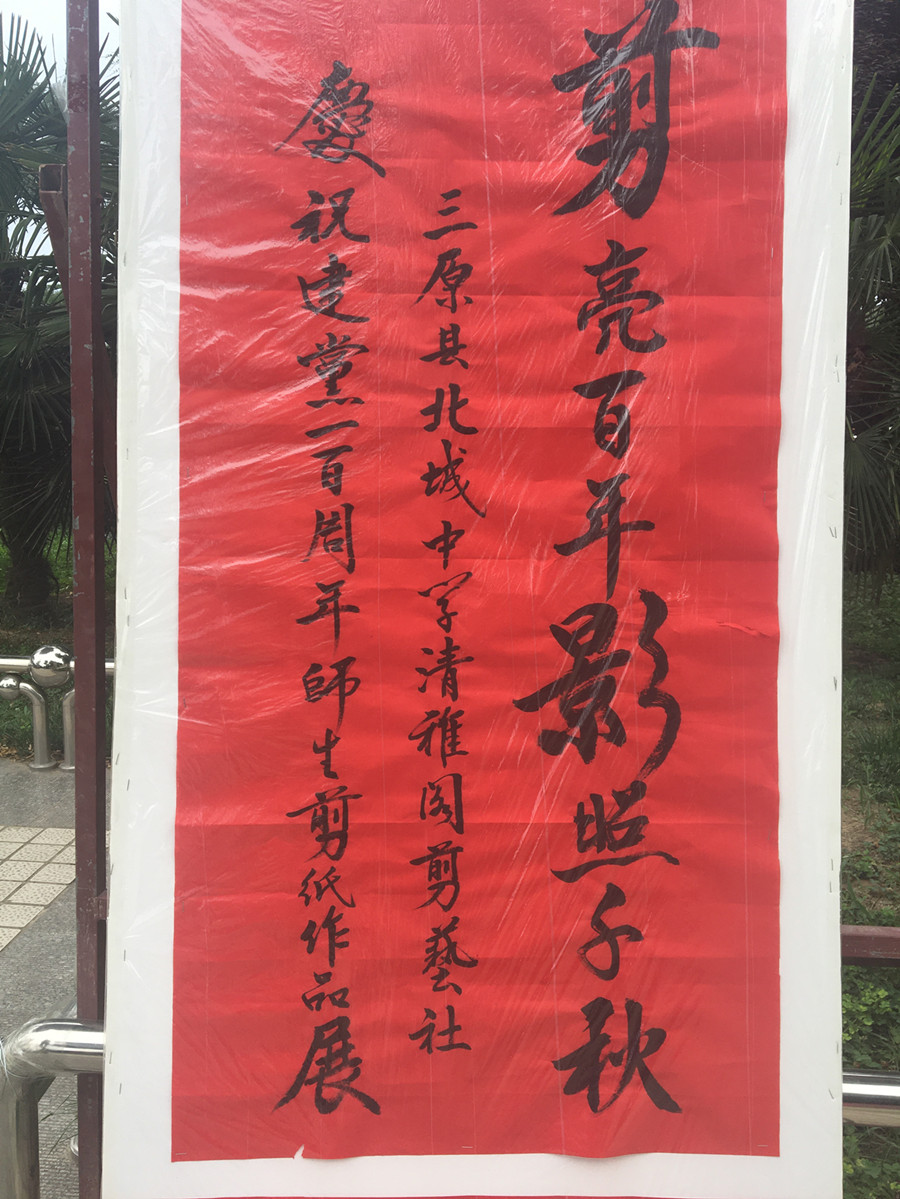 剪亮百年影照千秋
三原县北城中学清雅阁剪藝社
慶祝建黨一百周年師生剪紙作品展